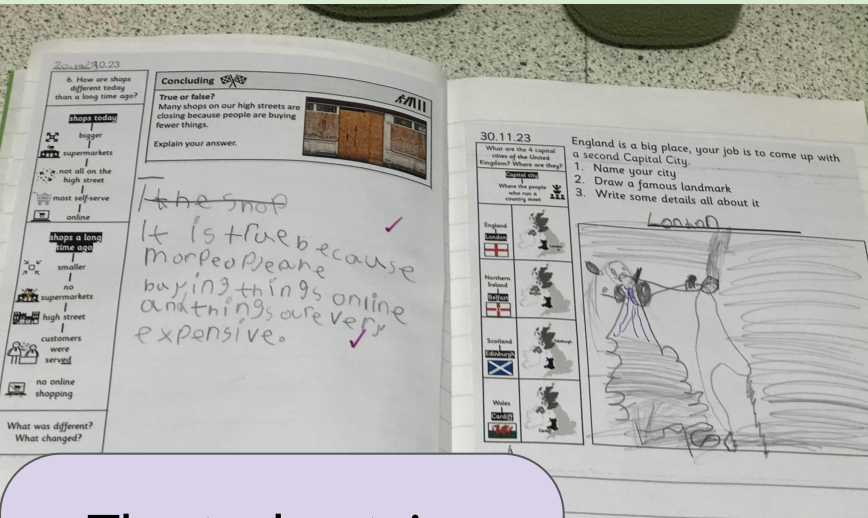 6. How are shops
different today
than a long time ago?
shops today
bigger
supermarkets
not all on the
high street
most self-serve
online
shops a long
time ago
smaller
no
supermarkets
high street
customers
were
served
no online
shopping
What was different?
What changed?
Concluding
True or false?
Many shops on our high streets are
closing because people are buying
fewer things.
Explain your answer.
the shop
It is true because
more people are
buying things online
and things are very
expensive.
30.11.23
What are the 4 capital
cities of the United
Kingdom? Where are they?
Capital city
Where the people
who run a
country meet
England
London
Northern
Ireland
Belfast
Scotland
Edinburgh
Edinburgh
Wales
Cardiff
England is a big place, your job is to come up with
a second Capital City.
1. Name your city
2. Draw a famous landmark
3. Write some details all about it
London